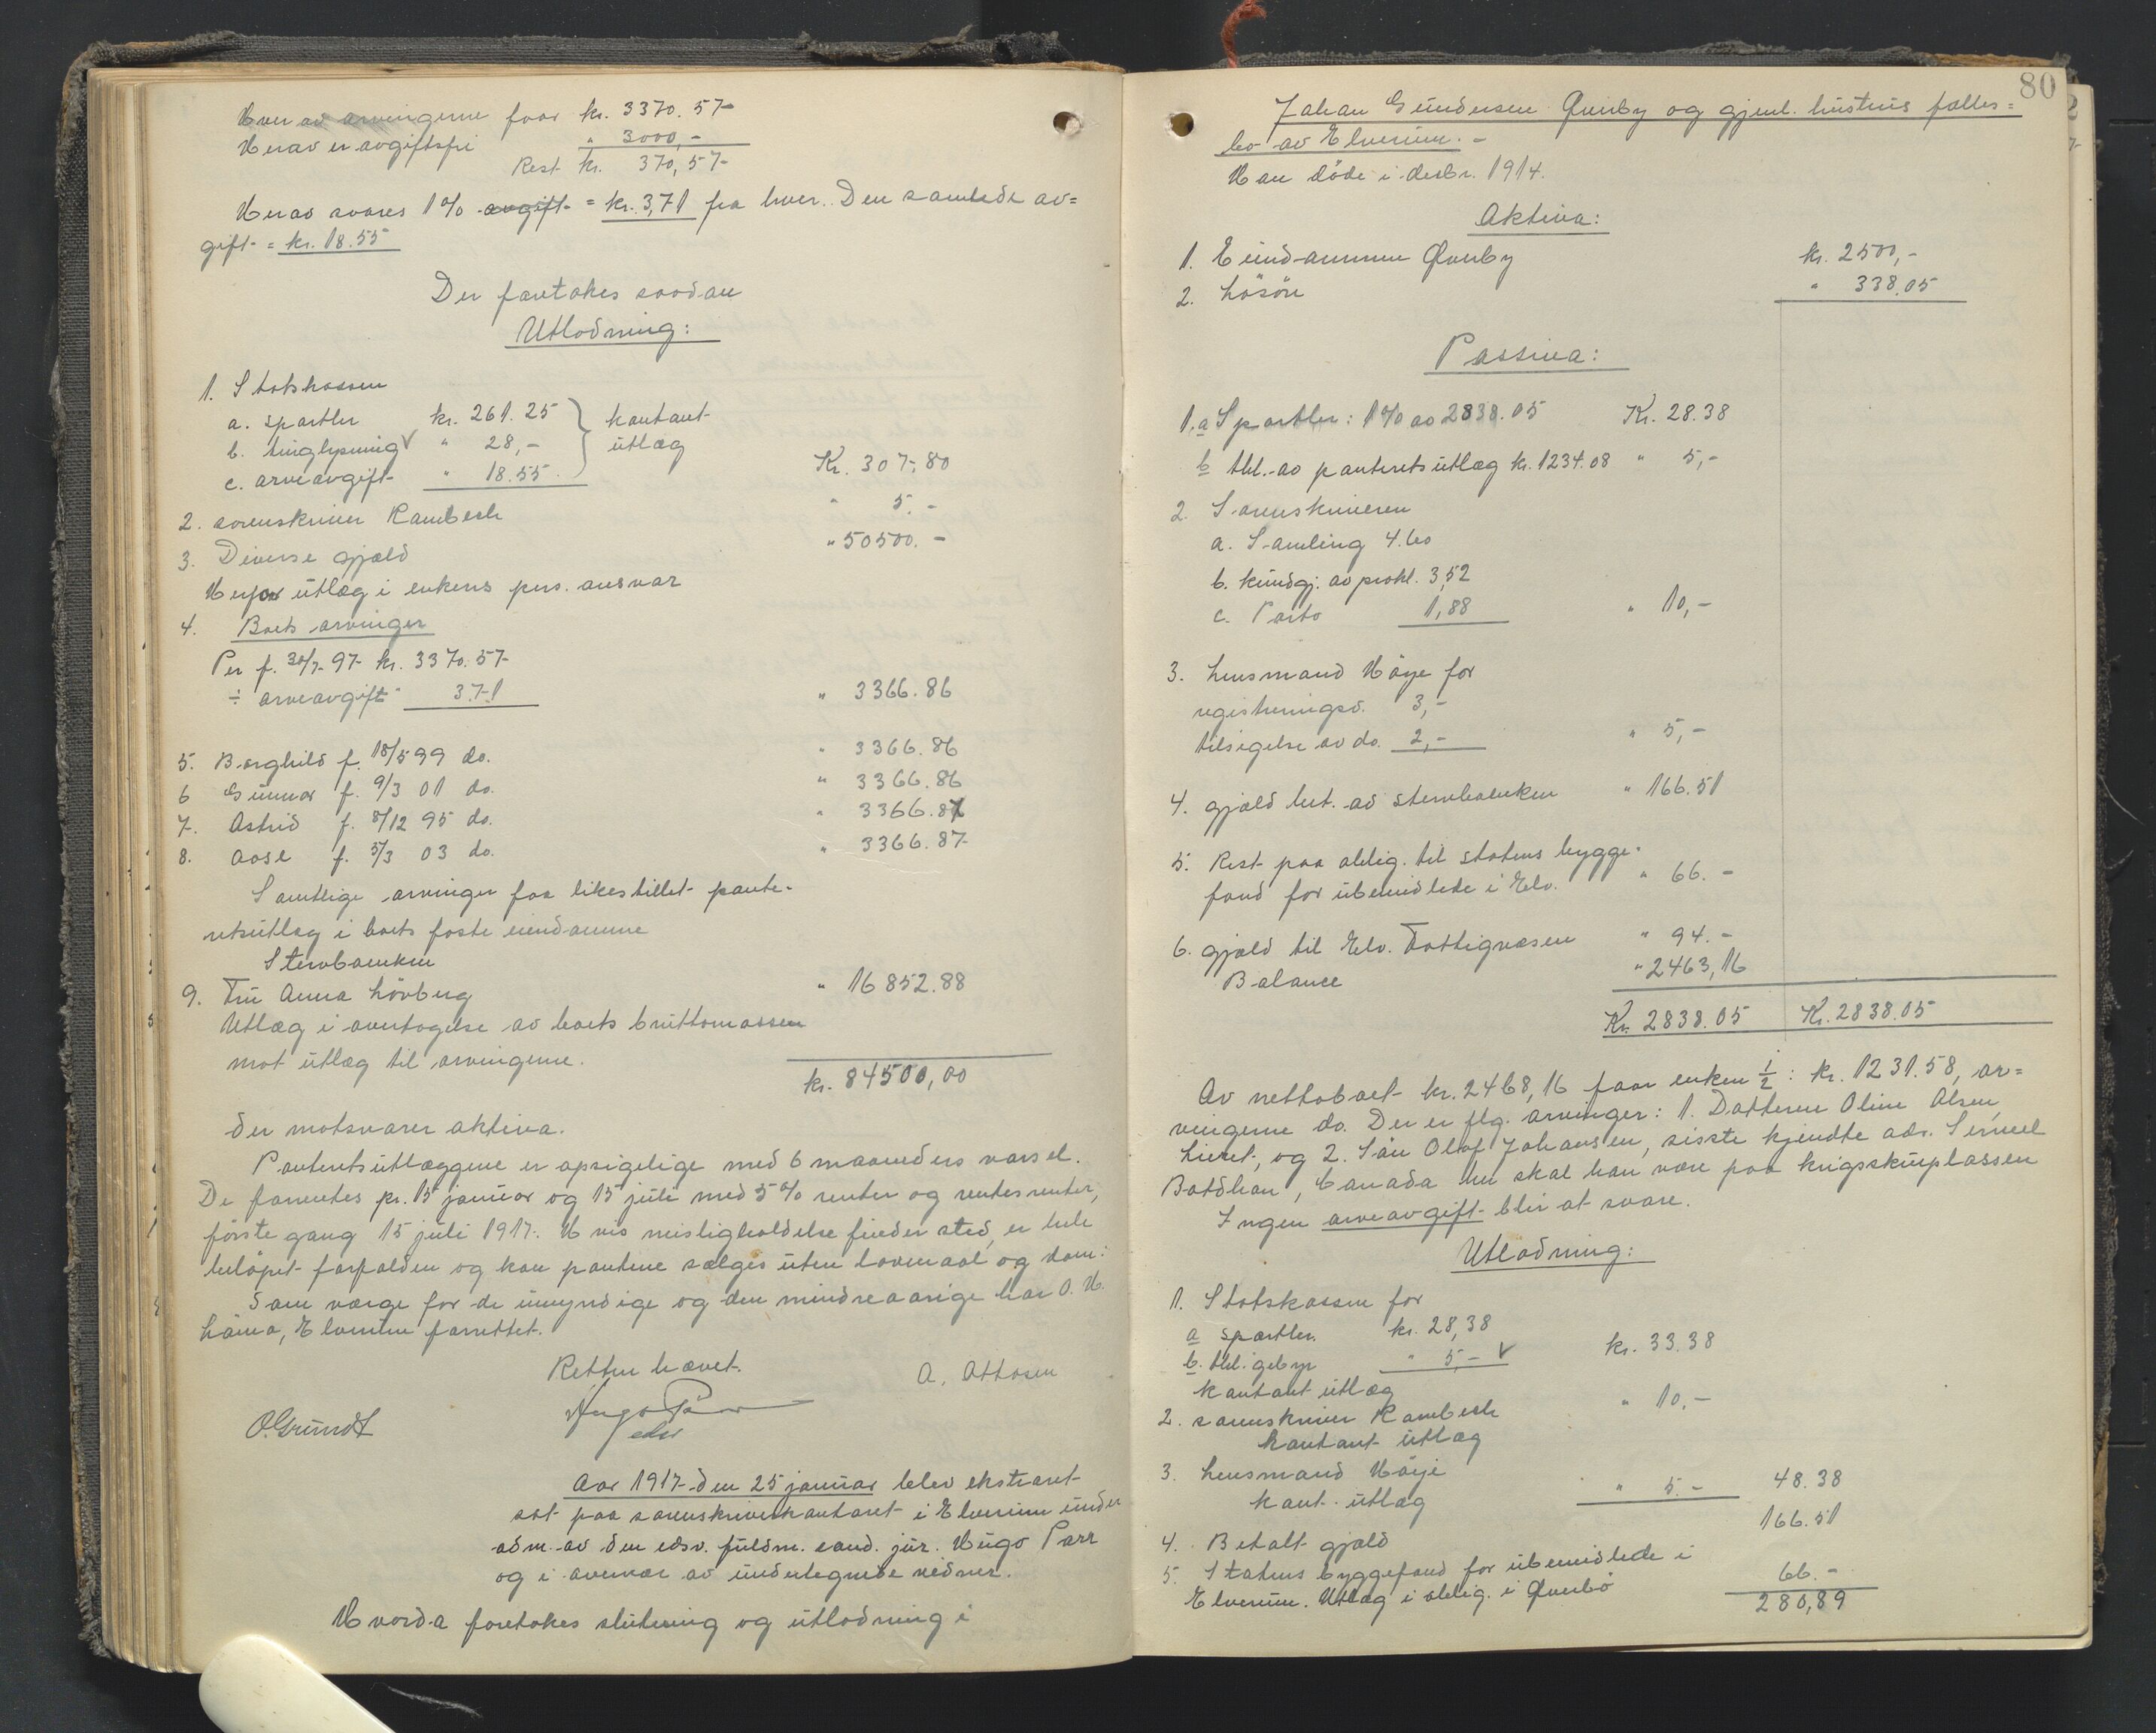 Hver av arvingerne faar kr. 3370.57
Herav er avgiftsfri " 3000,-
Rest kr. 370,57
Herav svares 1% avgift = kr. 3,71 fra hver. Den samlede av=
gift = kr. 18.55
Der foretokes saadan
Utlodning:
1. Statskassen
a. sportler kr. 261.25 } kontant
b. tinglysning √ " 28,- utlæg
c. arveavgift " 18.55 Kr. 307,80
2. sorenskriver Rambech " 5.-
3. Diverse gjæld " 50500.-
Herfor utlæg i enkens pers. ansvar
4. Boets arvinger
Per f. 30/7 97 kr. 3370.57
÷ arveavgift 3.71 " 3366.86
5. Borghild f. 18/5 99 do. " 3366.86
6 Gunnar f. 9/3 01 do. " 3366.86
7. Astrid f. 8/12 95 do. " 3366.87
8. Aase f. 5/3 03 do. " 3366.87
Samtlige arvinger faar likestillet pante-
retsutlæg i boets faste eiendomme
Stervboenken
9. Fru Anna Lövberg " 16852.88
Utlæg i overtagelse av boets bruttomassen
mot utlæg til arvingerne.
kr. 84500,00
der motsvarer aktiva.
Panteretsutlæggene er opsigelige med 6 maaneders varsel.
De forrentes pr. 15 januar og 15 juli med 5% renter og rentesrenter,
förste gang 15 juli 1917. Hvis misligholdelse finder sted, er hele
belöpet forfalden og kan pantene sælges uten lovmaal og dom.
Som værge for de umyndige og den mindreaarige har O. H.
Elverum forrettet.
Retten hævet.
A. Ottosen
Hugo Parr
edsv
O. Grundt
Aar 1917 den 25 januar blev ekstraret
sat paa sorenskriverkontoret i Elverum under
adm. av den edsv. fuldm. cand. jur. Hugo Parr
og i overvær av undertegnede vidner.
Hvorda foretokes slutning og utlodning i
80
Johan Gundersen Qvenby og gjenl. hustrus fælles=
bo av Elverum. -
Han döde i desbr. 1914.
Aktiva:
1. Eiendommen Qvenby kr. 2500,-
2. Lösöre " 338.05
Passiva:
1. a Sportler: 1% av 2838.05 Kr. 28.38
b thl. av panteretsutlæg kr. 1234.08 " 5,-
2. Sorenskriveren
a. Samling 4.60
b. kundgj. av prokl. 3,52
c. Porto 1,88 " 10,-
3. Lensmand Höye for
registreringsf. 3,-
tilsigelse av do. 2,- " 5,-
4. gjæld bet. av stervboenken " 166.51
5. Rest paa oblig. til statens bygge-
fond for ubemidlede i Elv. " 66.-
6. gjæld til Elv. Fattigvæsen " 94.-
Balance " 2463,16
Kr. 2838.05 Kr. 2838.05
Av nettoboet kr. 2468,16 faar enken 1/2: kr. 1231.58, ar=
vingerne do. Der er flg. arvinger: 1. Datteren Oline Olsen,
og 2. Sön Olaf Johansen, sisste kjendte adr.
Canada nu skal han være paa krigsskuplassen
Ingen arveavgift blir at svare.
Utlodning:
1. Statskassen for
a sportler. kr. 28,38
b. thl. gebyr " 5,- √ kr. 33.38
kontant utlæg
2. sorenskriver Rambech " 10,-
kontant utlæg
3. Lensmand Höije
kont. utlæg " 5.- 48.38
4. Betalt gjæld 166.51
5. Statens byggefond for ubemidlede i
Elverum. Utlæg i oblig. i Qvenbö 66.-
280,89